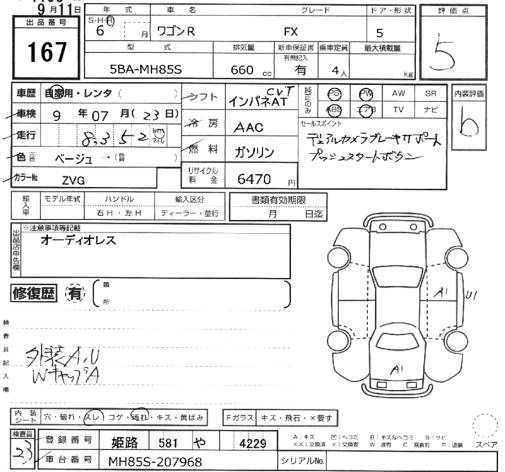 9月11日
出品番号 年式 車名 グレード ドア・形状 評価点
S・H・R
167 6 月 ワゴンR FX 5 5
型式 排気量 新車保証書 乗車定員 最大積載量
有無記入
5BA-MH85S 660cc 有 4人 kg
車歴 自家用・レンタ( ) シフト CVT インパネAT 純正のみ PS PW AW SR 内装評価
車検 9年07月(23日) 冷房 AAC ABS エアB TV ナビ b
走行 8352 km マイル 燃料 ガソリン セールスポイント
デュアルカメラブレーキサポート
プッシュスタートボタン
色 元色 ベージュ→(替)
カラーNo ZVG リサイクル料金 6470円
輸入車 モデル年式 ハンドル 輸入区分 書類有効期限
右H・左H ディーラー・並行 月 日迄
出品店申告欄 ※注意事項等記載
オーディオレス
修復歴 有 箇所
検査員記入欄
外装A,U
WキャップA
A1 U1
A1
内装シート 穴・破れ・スレ・コゲ・汚れ・キズ・黄ばみ Fガラス キズ・飛石・×要す
検査員 登録番号 姫路 581 や 4229
A:キズ U:ヘコミ B:キズ&ヘコミ S:サビ
23 車台番号 MH85S-207968 シリアルNo.
スペア